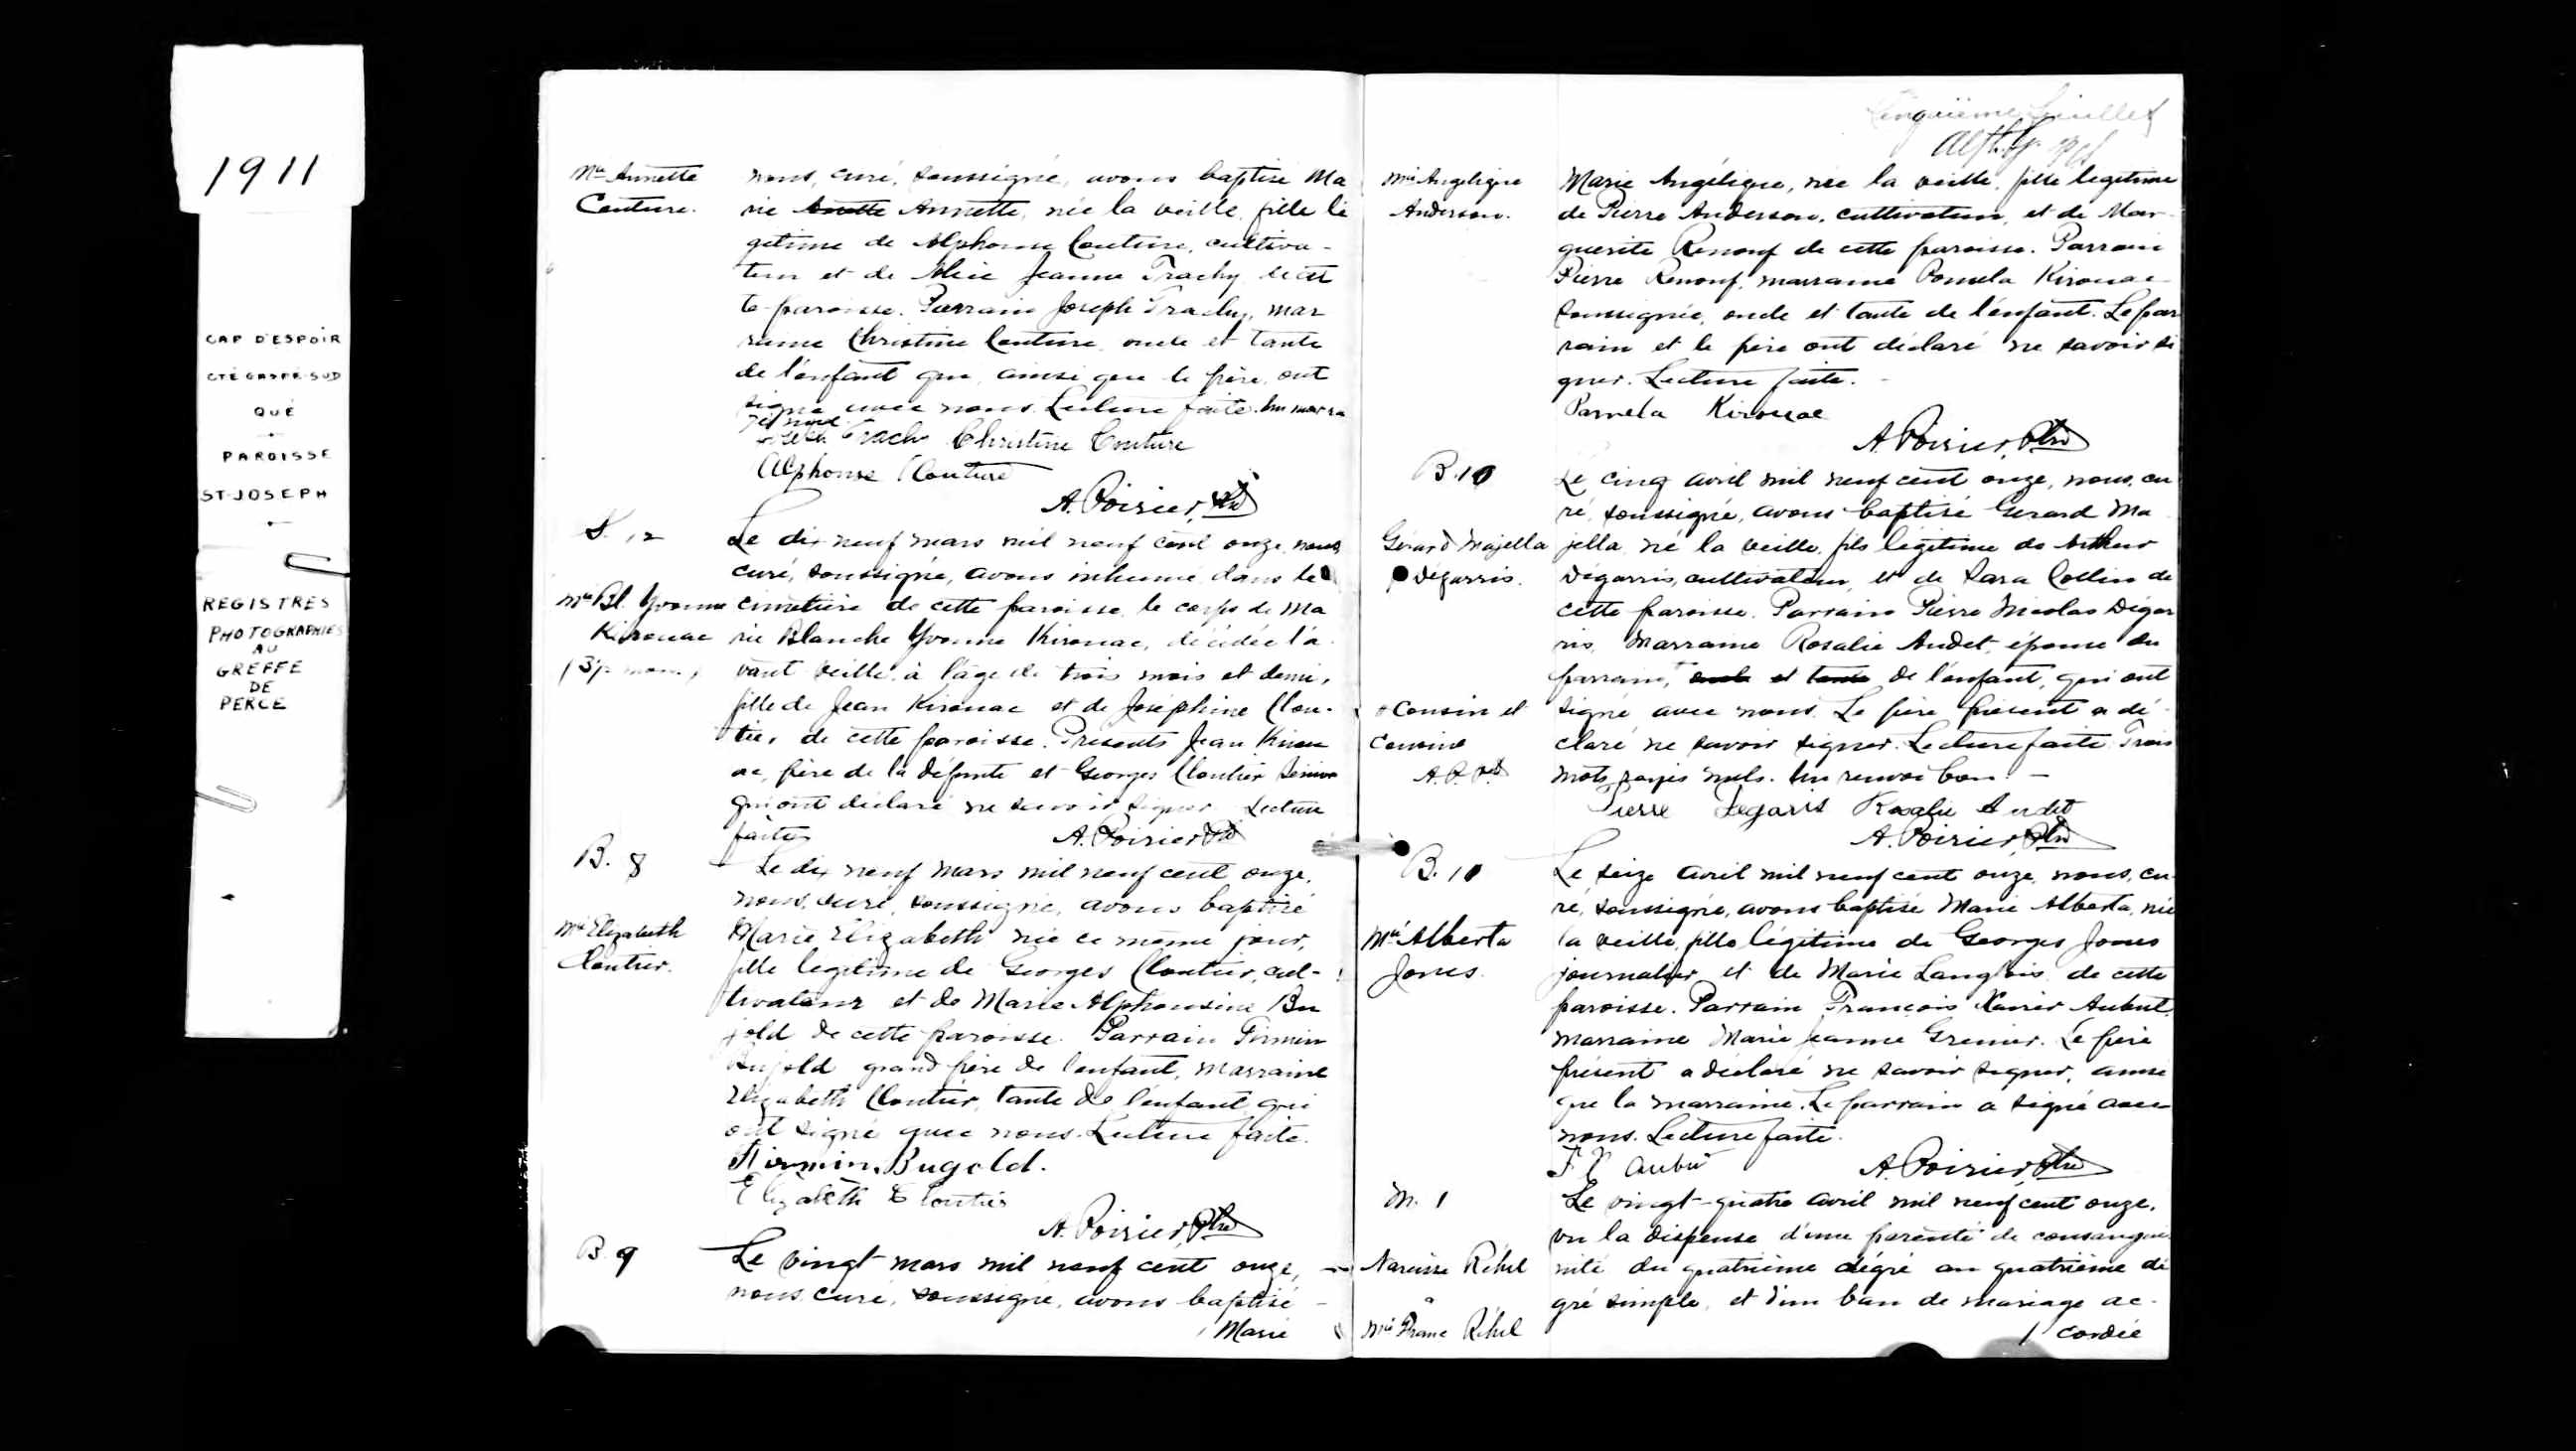 1911
CAP D'ESPOIR
CTÉ GASPÉ-SUD
QUÉ
PAROISSE
ST-JOSEPH
REGISTRES
PHOTOGRAPHIES
AU
GREFFE
DE
PERCÉ
Mie Annette
Couture.
nous, curé, soussigné, avons baptisé Ma
rie Annette, née la veille, fille lé
gitime de Alphonse Couture, cultiva-
teur et de Alice Jeanne Trachy de cet
te paroisse. Parrain Joseph Trachy, mar
raine Christine Couture, oncle et tante
de l'enfant qui, ainsi que le père, ont
signé avec nous. Lecture faite. Un mot ra
yé nul
Trachy Christine Couture
Alphonse Couture
A. Poirier, Ptre
S. 12
Mie Bl. Yvonne
Kirouac
Le dix neuf mars mil neuf cent onze, nous,
curé, soussigné, avons inhumé dans le
cimetière de cette paroisse le corps de Ma
rie Blanche Yvonne Kirouac, décédée l'a
vant veille, à l'âge de trois mois et demi,
fille de Jean Kirouac et de Joséphine Clou-
tier, de cette paroisse. Présents Jean Kirou
ac, père de la défunte et Georges Cloutier Sénior
qui ont déclaré ne savoir signer. Lecture
faite
A. Poirier Ptre
B. 8
Mie Elizabeth
Cloutier.
Le dix neuf mars mil neuf cent onze,
nous, curé, soussigné, avons baptisé
Marie Elizabeth née ce même jour,
fille légitime de Georges Cloutier, cul-
tivateur et de Marie Alphonsine Bu
jold de cette paroisse. Parrain Firmin
Bujold grand père de l'enfant, marraine
Elizabeth Cloutier, tante de l'enfant qui
ont signé avec nous. Lecture faite.
Firmin Bugold.
Elizabeth Cloutier
A. Poirier, Ptre
B. 9
Le vingt mars mil neuf cent onze,
nous, curé, soussigné, avons baptisé
Marie
Cinquième feuillet
Mie Angélique
Anderson.
Marie Angélique, née la veille, fille légitime
de Pierre Anderson, cultivateur, et de Mar-
guerite Renouf de cette paroisse. Parrain
Pierre Renouf, marraine Pamela Kirouac
soussignée, oncle et tante de l'enfant. Le par
rain et le père ont déclaré ne savoir si
gner. Lecture faite.
Pamela Kirouac
A. Poirier, Ptre
B. 10
Gérard Majella
Dégarris.
Le cinq avril mil neuf cent onze, nous, cu
ré, soussigné, avons baptisé Gérard Ma
jella né la veille, fils légitime de Arthur
Dégarris, cultivateur, et de Sara Collin de
cette paroisse. Parrain Pierre Nicolas Dégar
ris, marraine Rosalie Audet, épouse du
parrain, + oncle et tante de l'enfant, qui ont
signé avec nous. Le père présent a dé-
claré ne savoir signer. Lecture faite. Trois
mots rayés nuls. Un renvoi bon. —
+ Cousin et
Cousine
A. P. Ptre
Pierre Degaris Rosalie Audet
A. Poirier, Ptre
B. 11
Mie Alberta
Jones
Le seize avril mil neuf cent onze, nous, cu
ré, soussigné, avons baptisé Marie Alberta, née
la veille, fille légitime de Georges Jones
journalier, et de Marie Langlois de cette
paroisse. Parrain François Xavier Aubut,
marraine Marie Jeanne Grenier. Le père
présent a déclaré ne savoir signer, ainsi
que la marraine. Le parrain a signé avec
nous. Lecture faite.
F X Aubut
A. Poirier, Ptre
M. 1
Narcisse Réhel
&
Mie Réhel
Le vingt-quatre avril mil neuf cent onze,
vu la dispense d'une parenté de consangui
nité du quatrième dégré au quatrième dé
gré simple, et d'un ban de mariage ac-
/ cordée